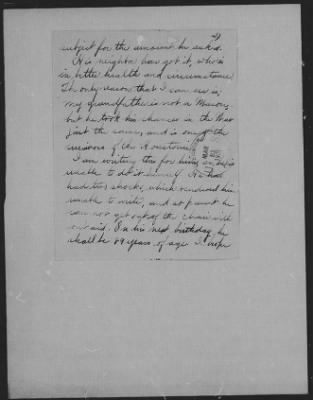 subject for the amount he asked.
His neighbor has got it, who is
in better health and circumstances.
The only reason that I can see is,
my grandfather is not a Mason,
but he took his chances in the War
just the same, and is one of the
survivors of the
I am writing this for him, he is
unable to do it himself. He has
had two shocks, which rendered him
unable to write, and at present he
can not get out of the chair with
out aid. On his next birthday, he
shall be 89 years of age. I hope